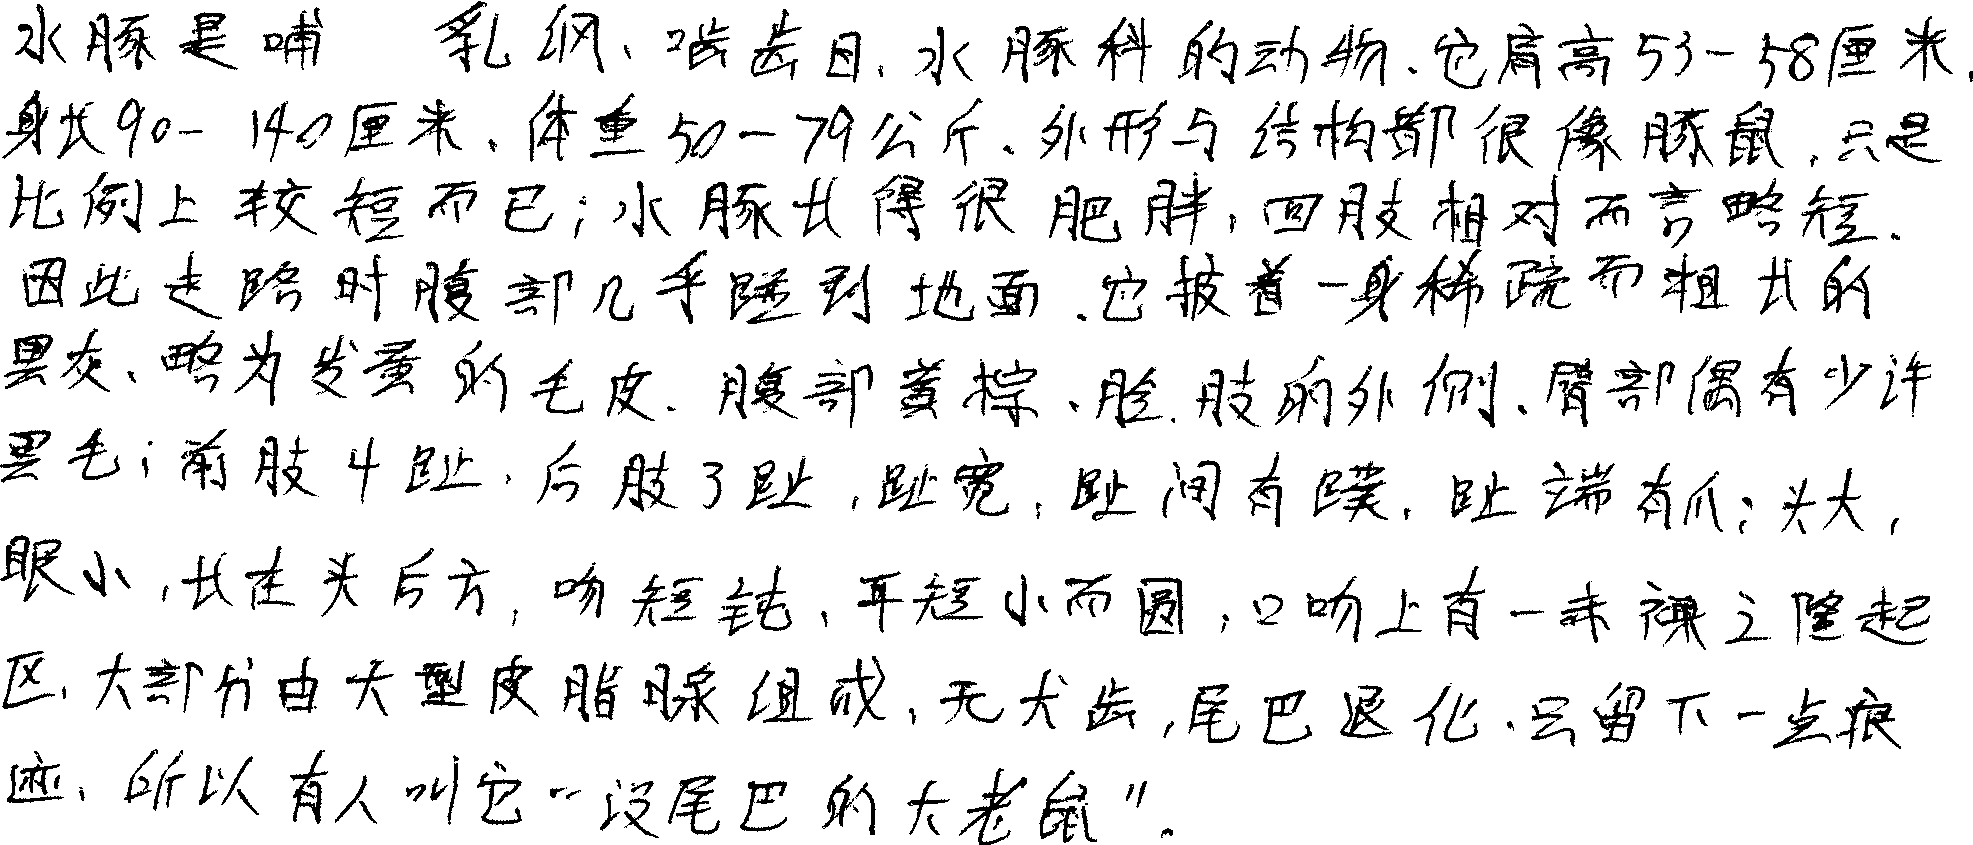 水豚是哺乳纲、啮齿目、水豚科的动物、它肩高53-58厘米,
身长90-140厘米、体重50-79公斤、外形与结构都很像豚鼠,只是
比例上较短而已;水豚长得很肥胖,四肢相对而言略短、
因此走路时腹部几乎碰到地面、它披着一身稀疏而粗长的
黑灰、略为发黄的毛皮、腹部黄棕、脸、肢的外侧、臀部偶有少许
黑毛;前肢4趾、后肢3趾,趾宽,趾间有蹼,趾端有爪;头大,
眼小,长在头后方,吻短钝,耳短小而圆,口吻上有一赤裸之隆起
区,大部分由大型皮脂腺组成、无犬齿,尾巴退化、只留下一点痕
迹、所以有人叫它“没尾巴的大老鼠”。